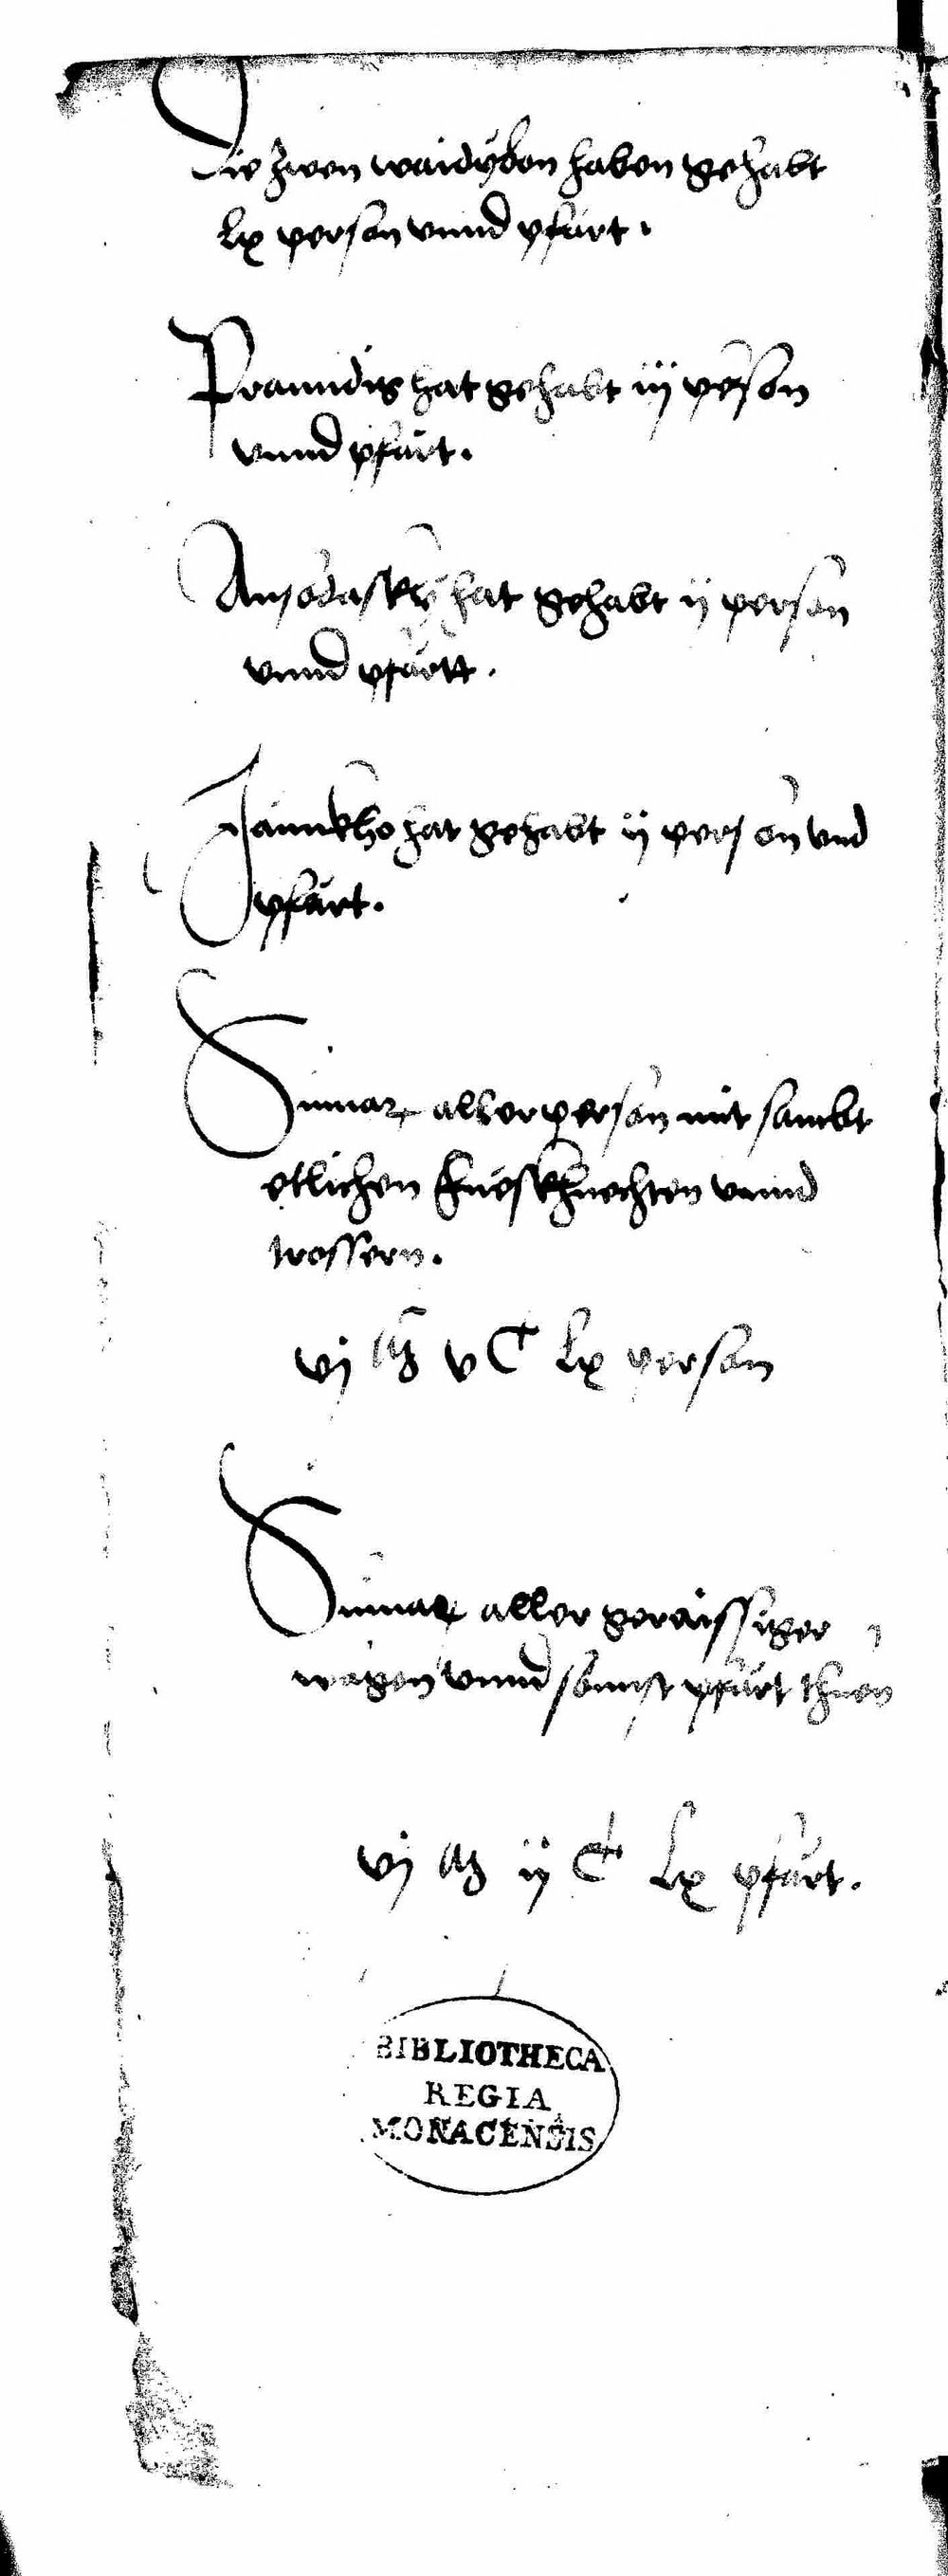 Die zwen waidyben haben gehabt
lx person vnnd pfärt.
Pranndis hat gehabt iij person
vnnd pfärt.
hat gehabt ij person
vnnd pfärtt.
Jännkho hat gehabt ij person vnd
pfärt.
Sumar aller person mit sambt
etlichen fuesskhnechten vnnd
trossern.
vj M v C lx person
Sumar aller geraissiger
wägen vnnd sonnst pfärt thuen
vj M ij C lx pfärt.
BIBLIOTHECA
REGIA
MONACENSIS